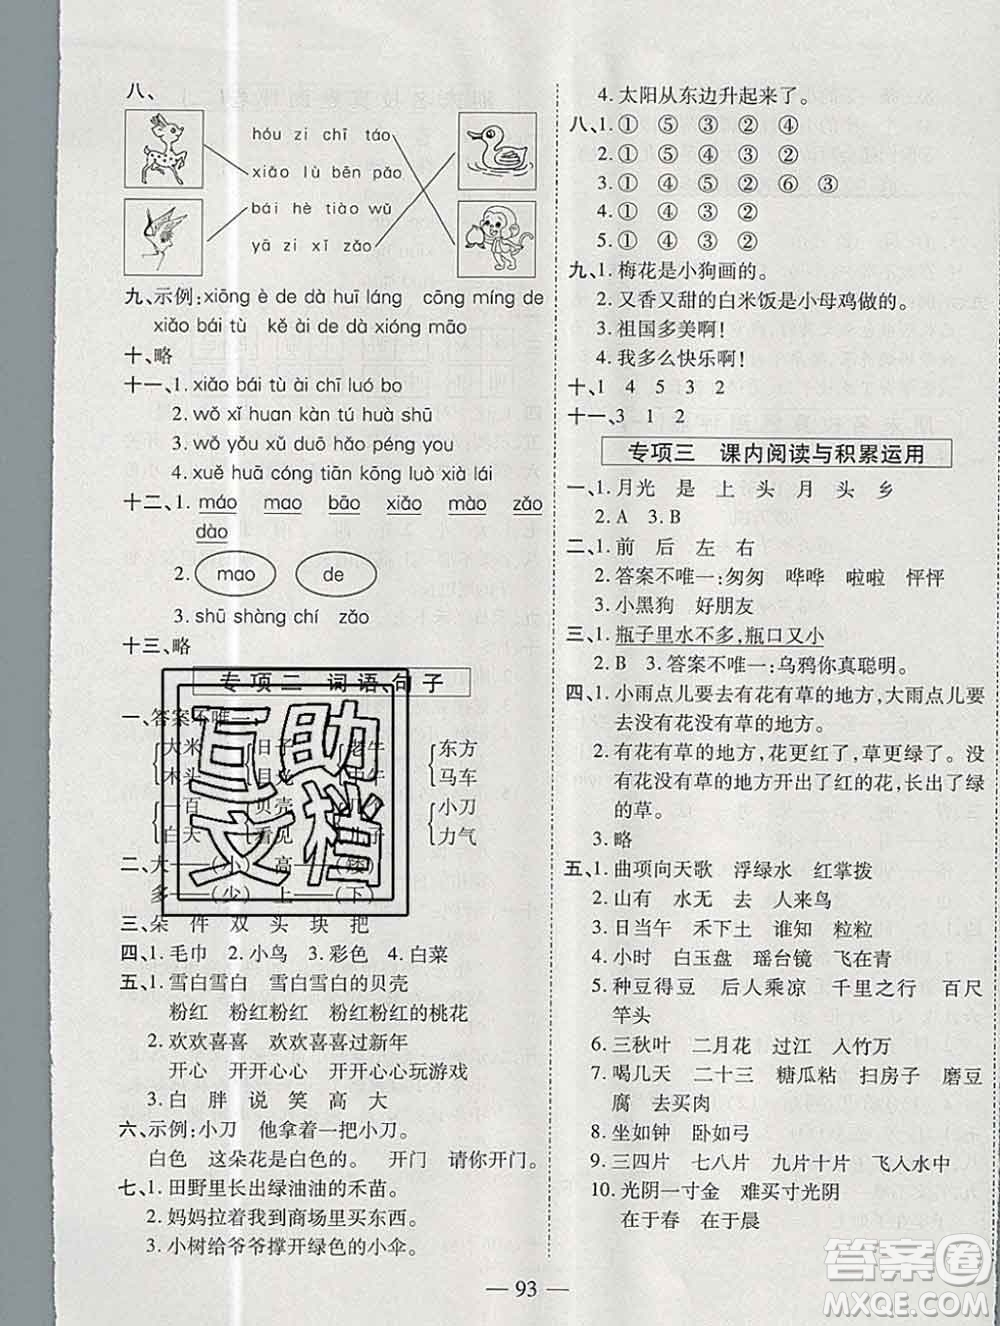 八、
hóu zi chī táo
xiǎo lù bēn pǎo
bái hè tiào wǔ
yā zi xǐ zǎo
九、示例:xiōng è de dà huī láng cōng míng de
xiǎo bái tù kě ài de dà xióng māo
十、略
十一、1. xiǎo bái tù ài chī luó bo
2. wǒ xǐ huan kàn tú huà shū
3. wǒ xū duō hǎo péng you
4. xuě huā cóng tiān kōng luò xià lái
十二、1. máo mao bāo xiǎo mào zǎo
dào
2. mao de
3. shū shàng chí zǎo
十三、略
专项二 词语、句子
一、答案不唯一:
大米 日子 老牛 东方
木头 马车
一百 贝壳 几个 小刀
白天 看见 力气
二、大——(小) 高——(矮)
多——(少) 上——(下)
三、朵 件 双 头 块 把
四、1. 毛巾 2. 小鸟 3. 彩色 4. 白菜
五、1. 雪白雪白 雪白雪白的贝壳
粉红 粉红粉红 粉红粉红的桃花
2. 欢欢喜喜 欢欢喜喜过新年
开心 开开心心 开开心心玩游戏
3. 白 胖 说 笑 高 大
六、示例:小刀 他拿着一把小刀。
白色 这朵花是白色的。 开门 请你开门。
七、1. 田野里长出绿油油的禾苗。
2. 妈妈拉着我到商场里买东西。
3. 小树给爷爷撑开绿色的小伞。
4. 太阳从东边升起来了。
八、1. ① ⑤ ② ④
2. ① ⑤ ③ ④ ②
3. ① ⑤ ④ ② ⑥ ③
4. ① ⑤ ② ③ ④
5. ① ③ ④ ② ⑤
九、1. 梅花是小狗画的。
2. 又香又甜的白米饭是小母鸡做的。
3. 祖国多美啊!
4. 我多么快乐啊!
十、1 4 5 3 2
十一、3 1 2
专项三 课内阅读与积累运用
一、1. 月光 是 上 头 月 头 乡
2. A 3. B
二、1. 前 后 左 右
2. 答案不唯一:匆匆 哗哗 啦啦 怦怦
3. 小黑狗 好朋友
三、1. 瓶子里水不多,瓶口又小
2. B 3. 答案不唯一:乌鸦你真聪明。
四、1. 小雨点儿要去有花有草的地方,大雨点儿要
去没有花没有草的地方。
2. 有花有草的地方,花更红了,草更绿了。没
有花没有草的地方开出了红的花,长出了绿
的草。
3. 略
五、1. 曲项向天歌 浮绿水 红掌拨
2. 山有 水无 去 人来鸟
3. 日当午 禾下土 谁知 粒粒
4. 小时 白玉盘 瑶台镜 飞在青
5. 种豆得豆 后人乘凉 千里之行 百尺
竿头
6. 三秋叶 二月花 过江 入竹万
7. 喝几天 二十三 糖瓜粘 扫房子 磨豆
腐 去买肉
8. 坐如钟 卧如弓
9. 三四片 七八片 九片十片 飞入水中
10. 光阴一寸金 难买寸光阴
在于春 在于晨
— 93 —
互助文档
答案圈
MXQE.COM